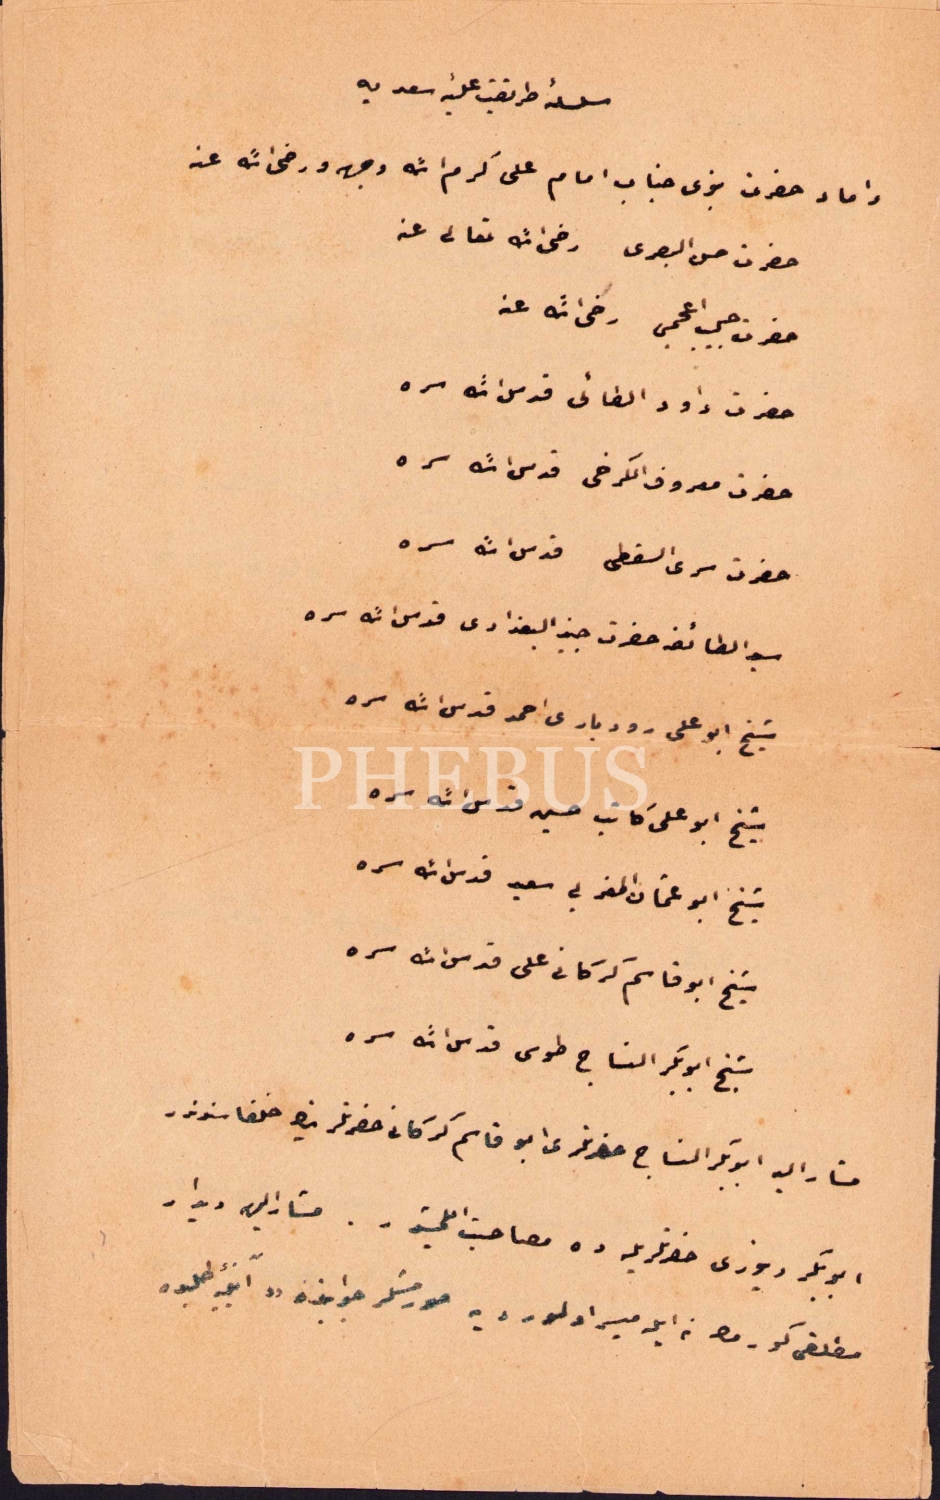 سلسلۀ طریقت علیۀ سعدیه
داماد حضرت نبوی جناب امام علی کرم الله وجهه و رضی الله عنه
حضرت حسن البصری رضی الله تعالی عنه
حضرت حبیب اعجمی رضی الله عنه
حضرت داود الطائی قدس الله سره
حضرت معروف الکرخی قدس الله سره
حضرت سری السقطی قدس الله سره
سید الطائفه حضرت جنید البغدادی قدس الله سره
شیخ ابو علی رودباری احمد قدس الله سره
PHEBUS
شیخ ابو علی کاتب حسین قدس الله سره
شیخ ابو عثمان المغربی سعید قدس الله سره
شیخ ابو قاسم کرکانی علی قدس الله سره
شیخ ابوبکر النساج طوسی قدس الله سره
مشار الیه ابوبکر النساج حضرتلری ابو قاسم کرکانی حضرتلرینك خلفاسندندر
ابوبکر دینوری حضرتلریله ده مصاحبت ایلمیشدر . مشار الیهه دیدار
مطلقی کورمك نه ایله میسر اولور دیه صورمشلر جوابنده